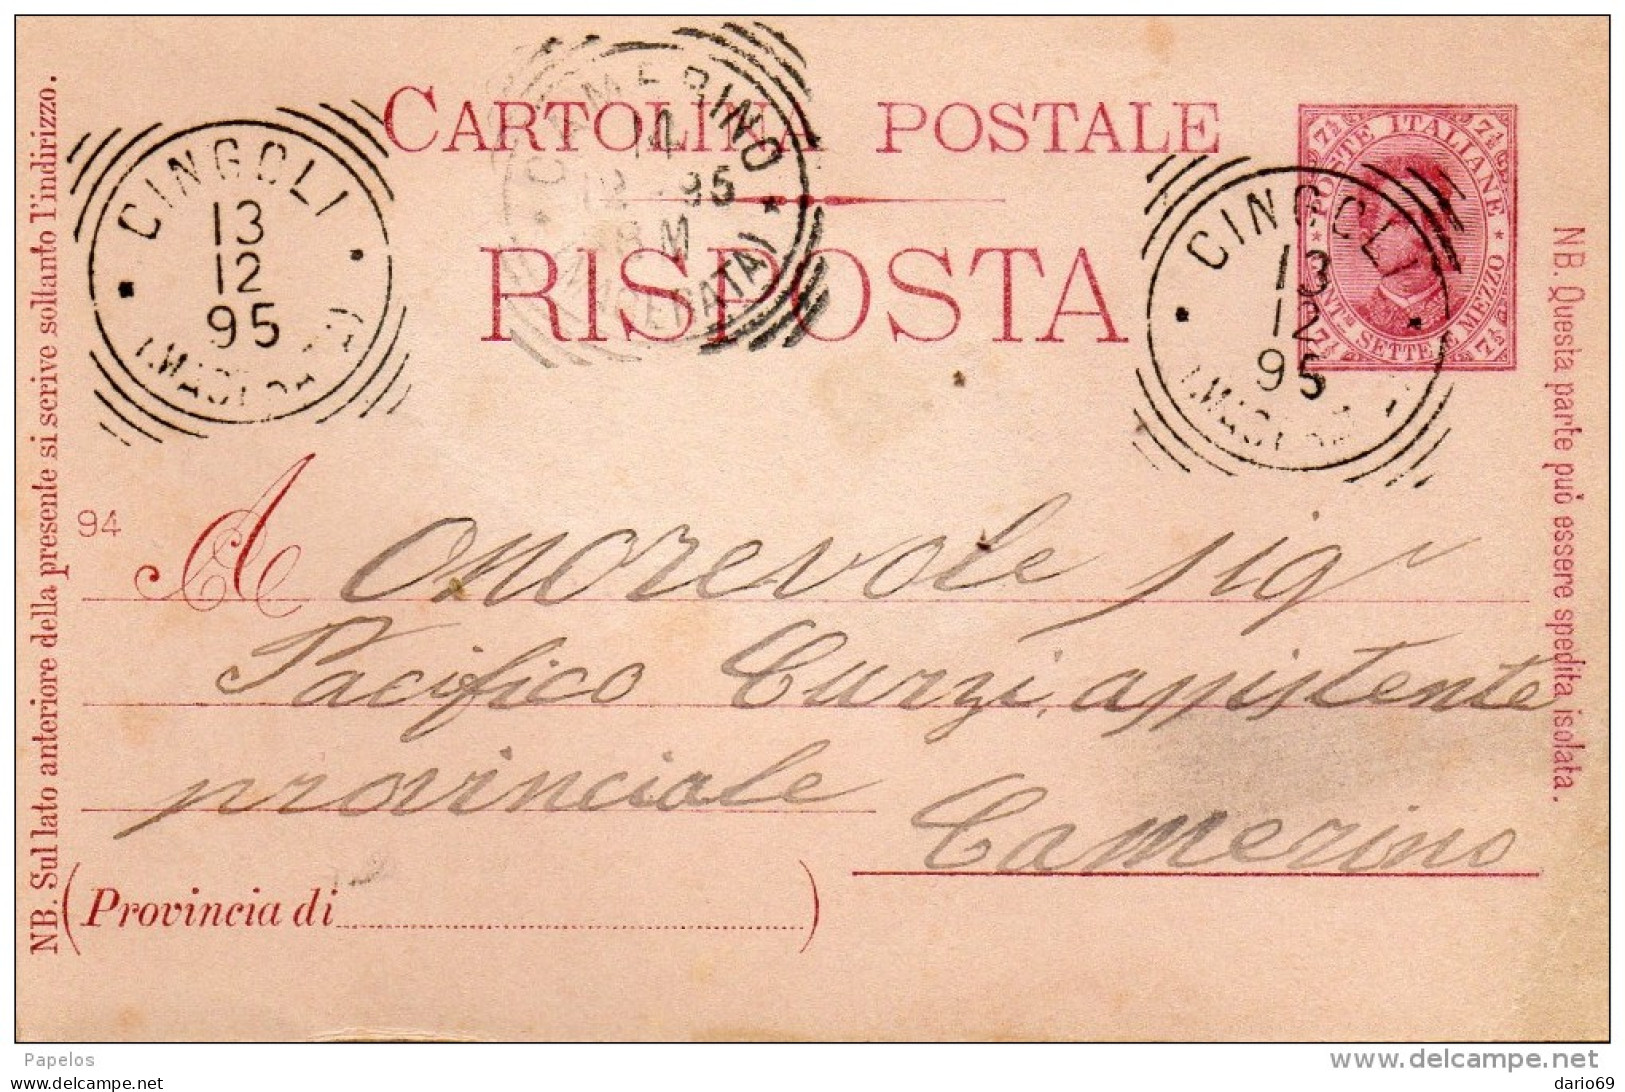 CARTOLINA POSTALE
RISPOSTA
CINGOLI
13
12
95
(MACERATA)
CAMERINO
14
12 95
8 M
(MACERATA)
CINGOLI
13
12
95
(MACERATA)
POSTE ITALIANE
CENT.MI SETTE E MEZZO
7½ 7½
7½ 7½
NB. Sul lato anteriore della presente si scrive soltanto l'indirizzo.
NB. Questa parte può essere spedita isolata.
94
A Onorevole sigr
Pacifico Curzi, assistente
provinciale Camerino
(Provincia di )
Papelos
www.delcampe.net
www.delcampe.net
dario69